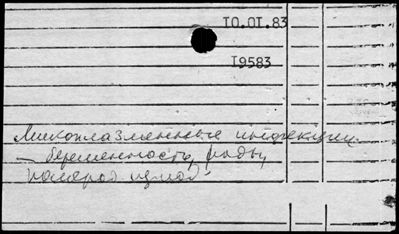 10.01.83
19583
Микоплазменные инфекции
— беременность, роды,